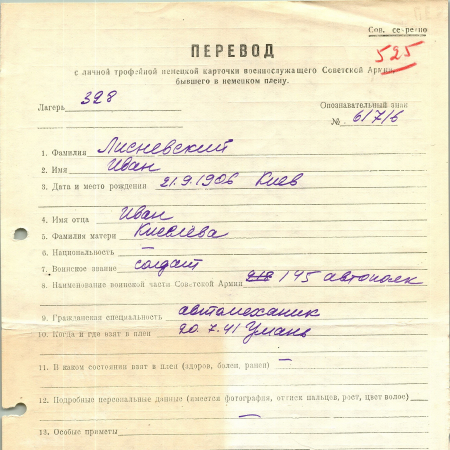 Сов. секретно
525
ПЕРЕВОД
с личной трофейной немецкой карточки военнослужащего Советской Армии,
бывшего в немецком плену.
Лагерь 328
Опознавательный знак
№ 61716
1. Фамилия Лисневский
2. Имя Иван
3. Дата и место рождения 21.9.1906 Киев
4. Имя отца Иван
5. Фамилия матери Киселёва
6. Национальность —
7. Воинское звание солдат
8. Наименование воинской части Советской Армии 145 автополк
9. Гражданская специальность автомеханик
10. Когда и где взят в плен 20.7.41 Умань
11. В каком состоянии взят в плен (здоров, болен, ранен) —
12. Подробные персональные данные (имеется фотография, оттиск пальцев, рост, цвет волос)
—
13. Особые приметы